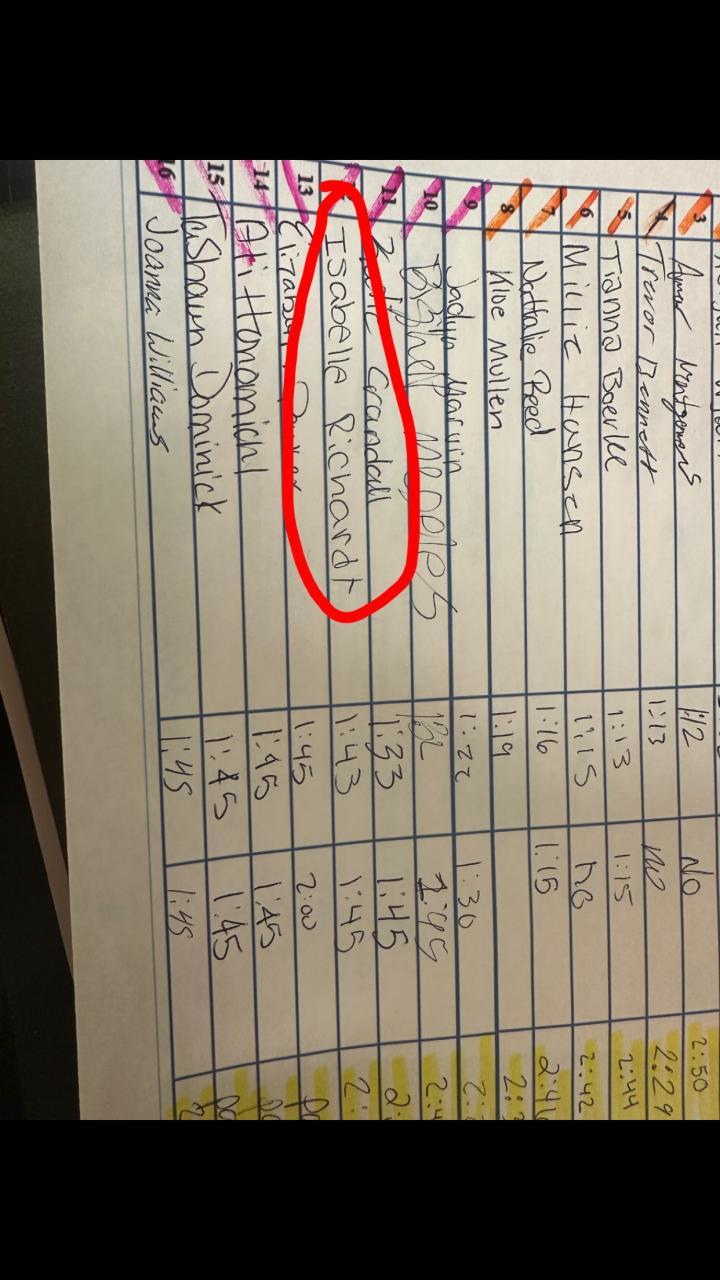 3 Montgomery 1:12 No 2:50
4 Trevor Bennett 1:13 no 2:29
5 Tianna Boerke 1:13 1:15 2:44
6 Millie Hansen 1:15 no 2:42
7 Nathalie Reed 1:16 1:15
8 Kloe Mullen 1:19
9 Jadyn Marvin 1:22 1:30
10 Mooples 1:32 1:45
11 Crandall 1:33 1:45
Isabelle Richardt 1:43 1:45
13 1:45 2:00
14 Ari Honomichl 1:45 1:45
15 TaShawn Dominick 1:45 1:45
16 Joanna Williams 1:45 1:45